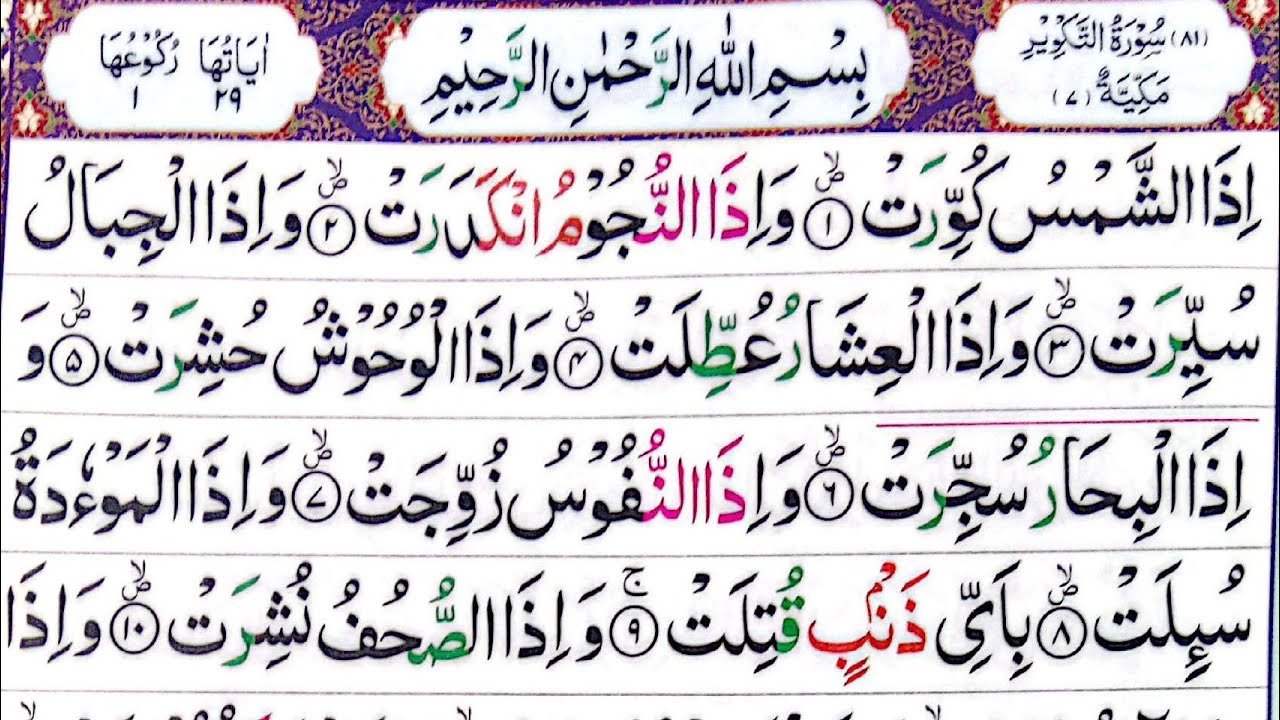 (٨١) سُوْرَةُ التَّكْوِيْرِ
مَكِّيَّةٌ (٧)
بِسْمِ اللّٰهِ الرَّحْمٰنِ الرَّحِيْمِ
اٰيَاتُهَا رُكُوْعُهَا
٢٩ ١
اِذَا الشَّمْسُ كُوِّرَتْ ۪ۙ ۝١ وَاِذَا النُّجُوْمُ انْكَدَرَتْ ۪ۙ ۝٢ وَاِذَا الْجِبَالُ
سُيِّرَتْ ۪ۙ ۝٣ وَاِذَا الْعِشَارُ عُطِّلَتْ ۪ۙ ۝٤ وَاِذَا الْوُحُوْشُ حُشِرَتْ ۪ۙ ۝٥ وَ
اِذَا الْبِحَارُ سُجِّرَتْ ۪ۙ ۝٦ وَاِذَا النُّفُوْسُ زُوِّجَتْ ۪ۙ ۝٧ وَاِذَا الْمَوْءٗدَةُ
سُىِٕلَتْ ۪ۙ ۝٨ بِاَىِّ ذَنْۢبٍ قُتِلَتْ ۚ ۝٩ وَاِذَا الصُّحُفُ نُشِرَتْ ۪ۙ ۝١٠ وَاِذَا